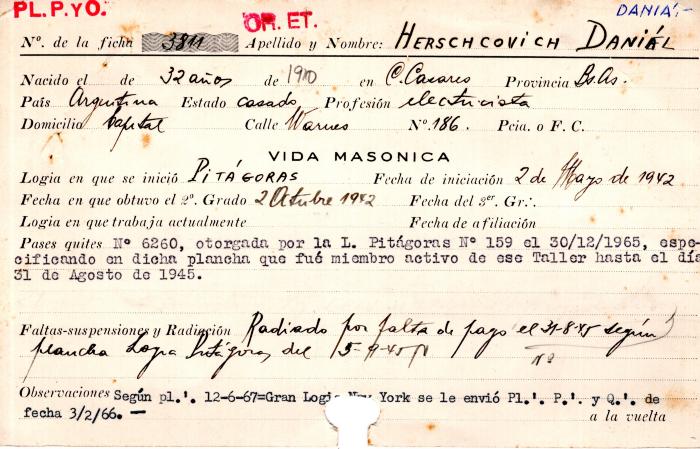 PL.P.yO. OR.ET. DANIÁ.-
Nº. de la ficha 3811 Apellido y Nombre: HERSCHCOVICH DANIÁL
Nacido el de 32 años de 1910 en C. Casares Provincia Bs.As.
País Argentina Estado casado Profesión electricista
Domicilio Capital Calle Warnes Nº. 186. Pcia. o F. C.
VIDA MASONICA
Logia en que se inició PITÁGORAS Fecha de iniciación 2 de Mayo de 1942
Fecha en que obtuvo el 2º. Grado 2 Octubre 1942 Fecha del 3er. Gr.·.
Logia en que trabaja actualmente Fecha de afiliación
Pases quites Nº 6260, otorgada por la L. Pitágoras Nº 159 el 30/12/1965, espe-
cificando en dicha plancha que fué miembro activo de ese Taller hasta el día
31 de Agosto de 1945.
Faltas-suspensiones y Radiación Radiado por falta de pago el 31-8-45 según
plancha Logia Pitágoras del Nº
Observaciones Según pl.'. 12-6-67=Gran Logia New York se le envió Pl.'. P.'. y Q.'. de
fecha 3/2/66. — a la vuelta